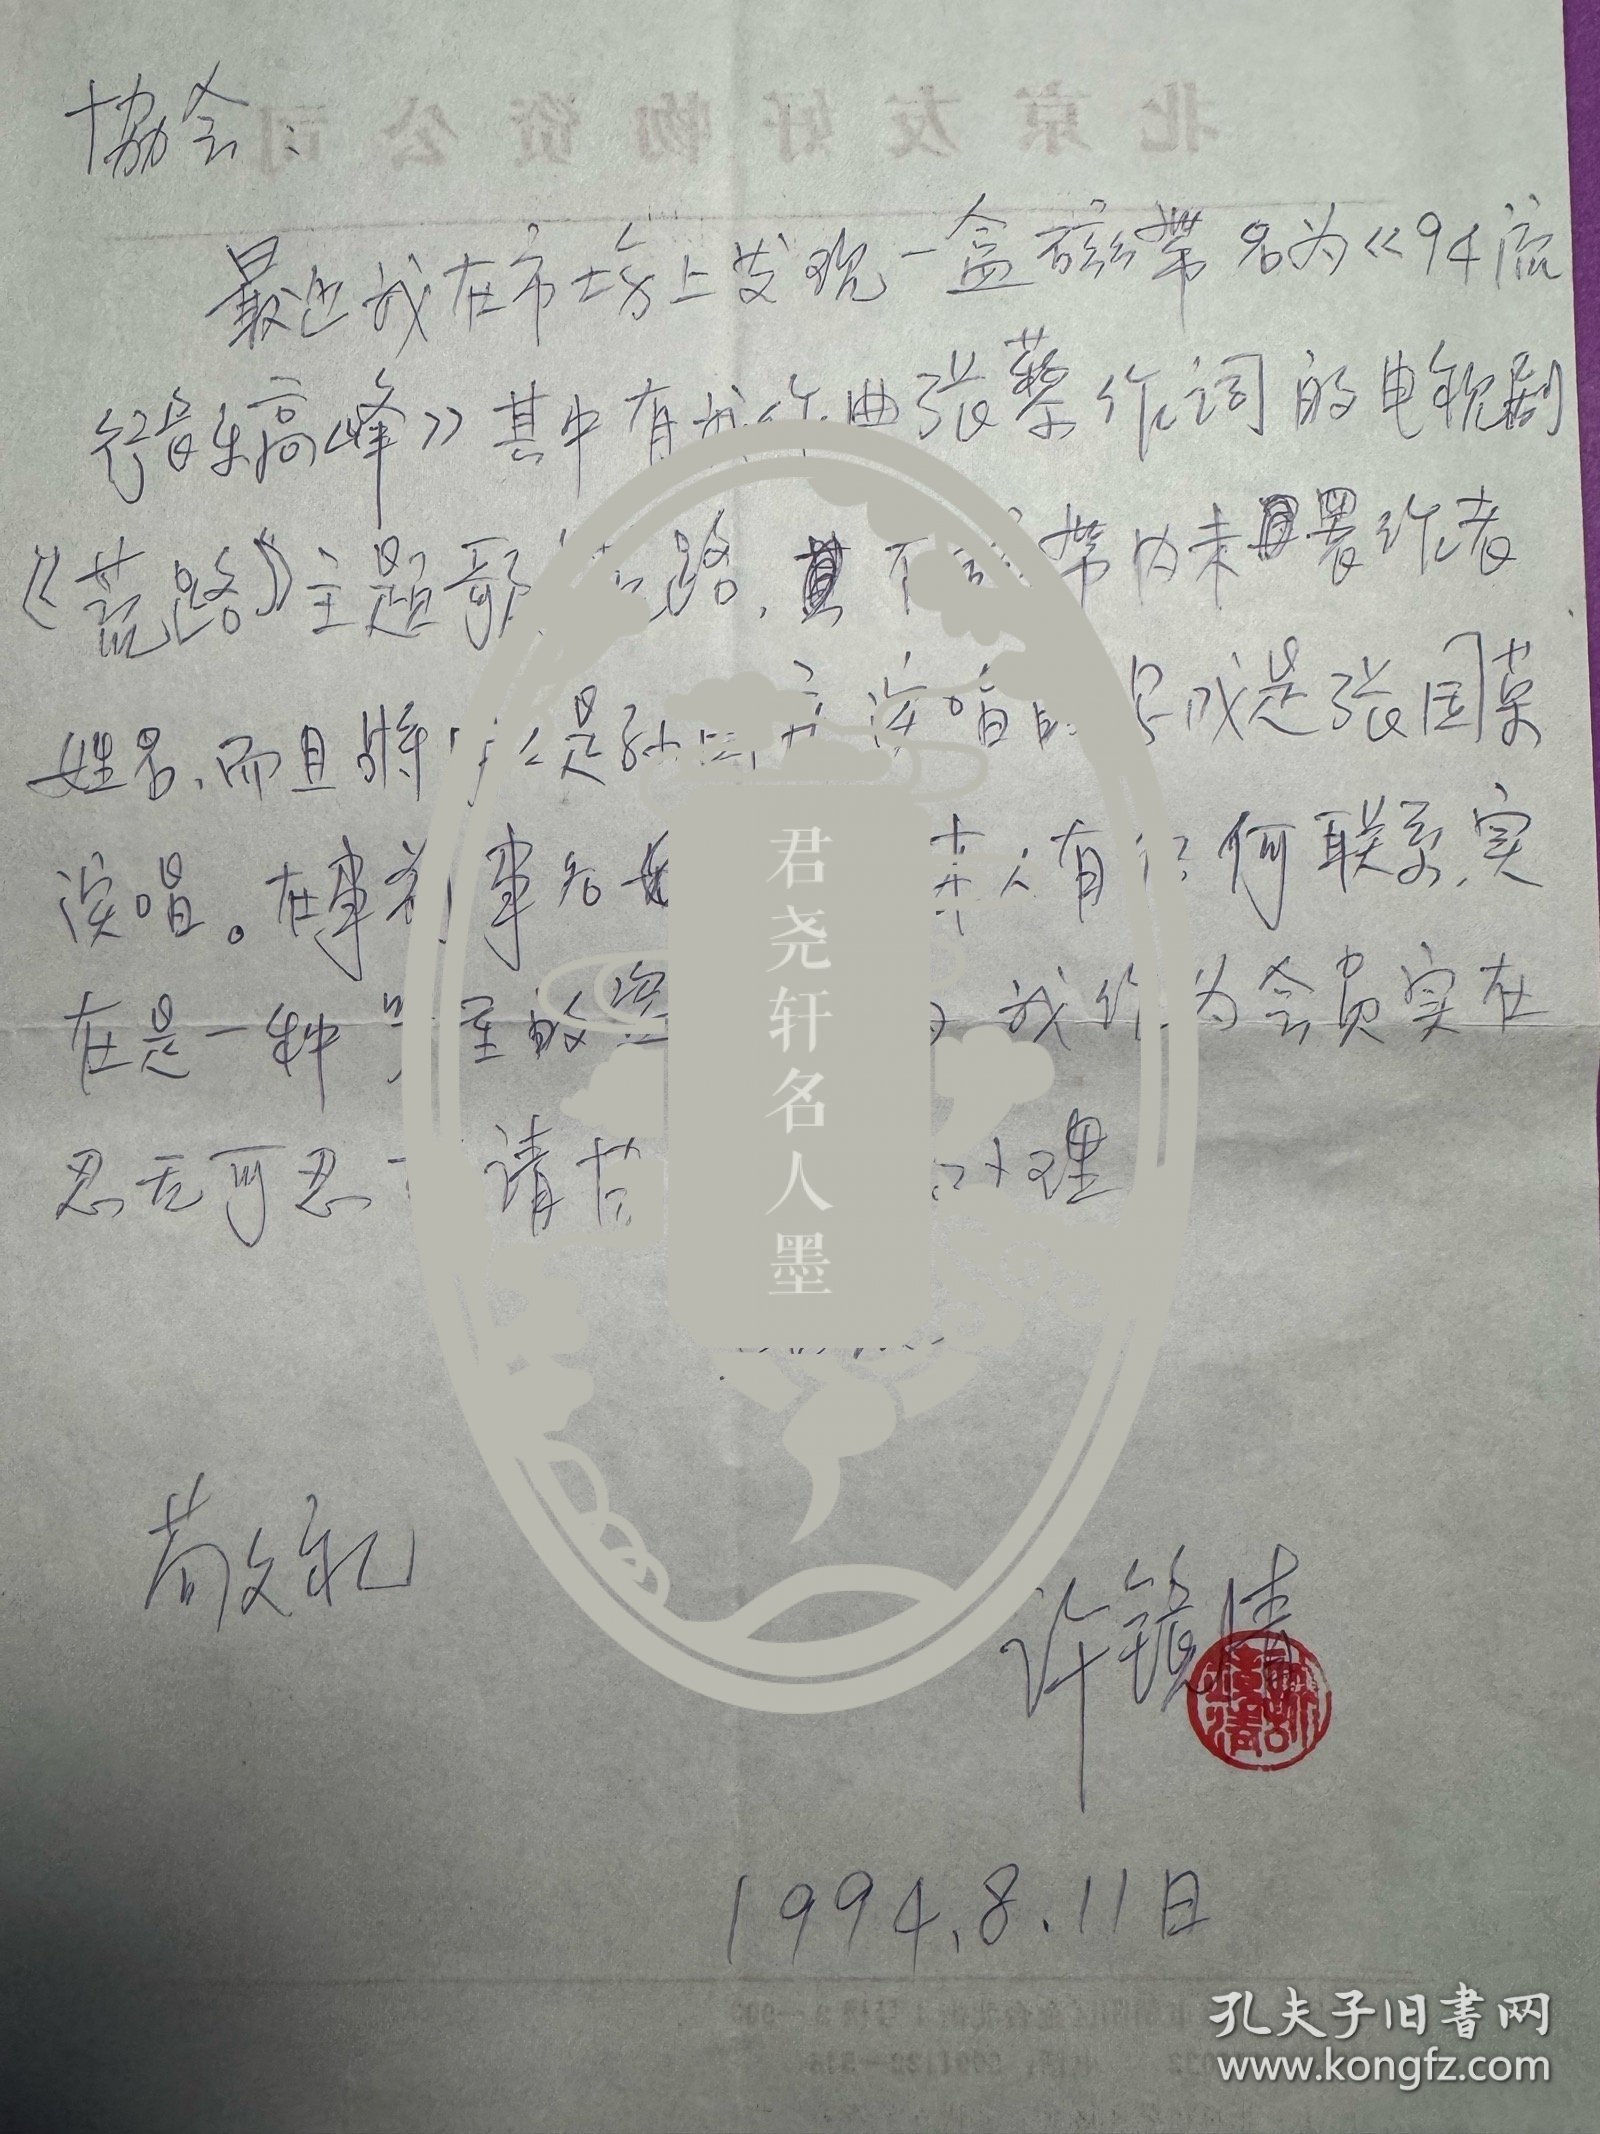 北京友好物资公司
协会：
最近我在市场上发现一盒磁带名为《94流
行音乐高峰》其中有我作曲张藜作词的电视剧
《荒路》主题歌 路，不 带内未署作者
姓名、而且将 是孙国庆演唱的 成是张国荣
演唱。在事前事后 本人有任何联系，实
在是一种 的 我作为会员实在
忍无可忍 请 处理
敬礼
许镜清
1994.8.11日
君尧轩名人墨
孔夫子旧书网
www.kongfz.com